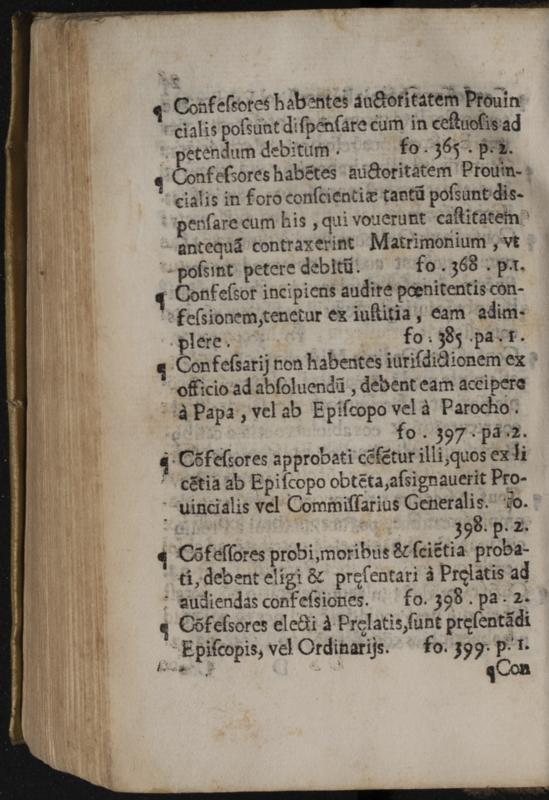 ¶ Confeſsores habentes auctoritatem Prouin
cialis poſsunt diſpenſare cum in ceſtuoſis ad
petendum debitum . fo . 365 . p. 2.
¶ Confeſsores habētes auctoritatem Prouin-
cialis in foro conſcientiæ tantū poſsunt diſ-
penſare cum his , qui vouerunt caſtitatem
antequā contraxerint Matrimonium , vt
poſsint petere debitū. fo . 368 . p.1.
¶ Confeſsor incipiens audire pœnitentis con-
feſsionem,tenetur ex iuſtitia , eam adim-
plere . fo . 385 .pa . 1 .
¶ Confeſsarij non habentes iuriſdictionem ex
officio ad abſoluendū , debent eam accipere
à Papa , vel ab Epiſcopo vel à Parocho .
fo . 397 . pa . 2.
¶ Cōfeſsores approbati cēſētur illi,quos ex li
cētia ab Epiſcopo obtēta,aſsignauerit Pro-
uincialis vel Commiſſarius Generalis. fo.
398. p. 2.
¶ Cōfeſsores probi,moribus & ſciētia proba-
ti, debent eligi & pręſentari à Pręlatis ad
audiendas confeſsiones. fo. 398 . pa . 2.
¶ Cōfeſsores electi à Pręlatis,ſunt pręſentādi
Epiſcopis, vel Ordinarijs. fo. 399. p. 1.
¶Con